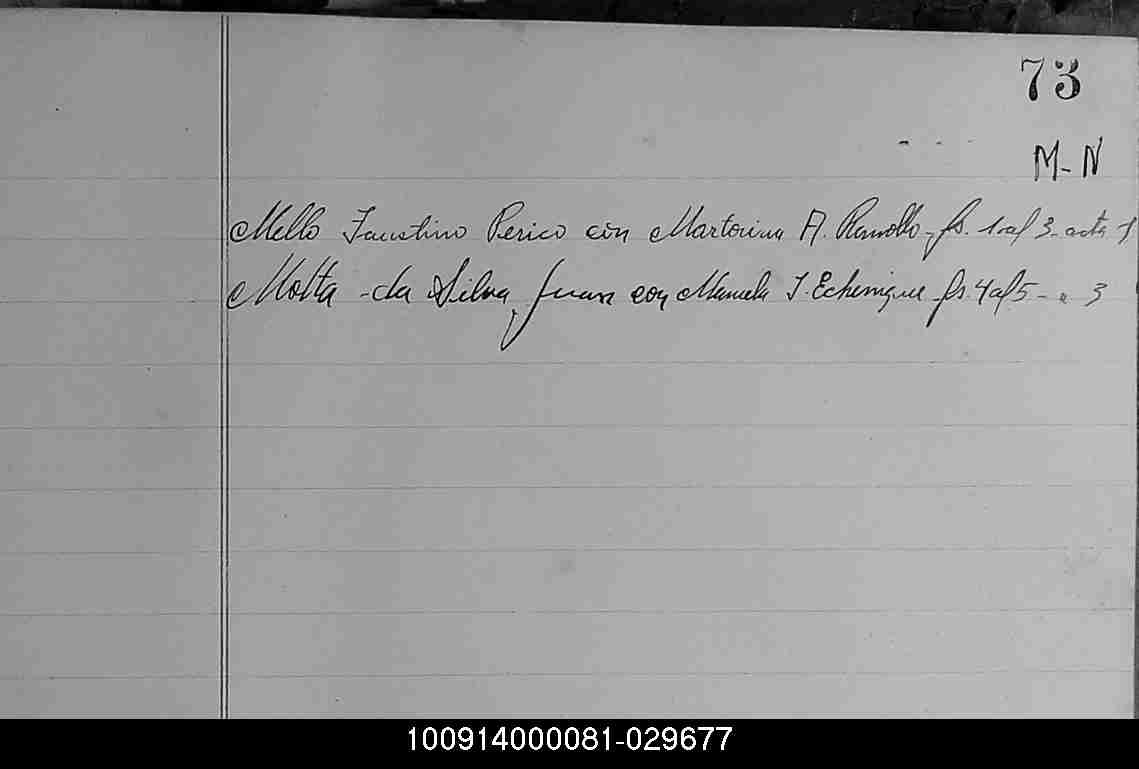 73
M-N
Mello Faustino Perico con Martorina A. Ramollo - fs. 1 al 3 - acta 1
Motta - da Silva, Juan con Manuela I. Echenique - fs. 4 al 5 - " 3
100914000081-029677